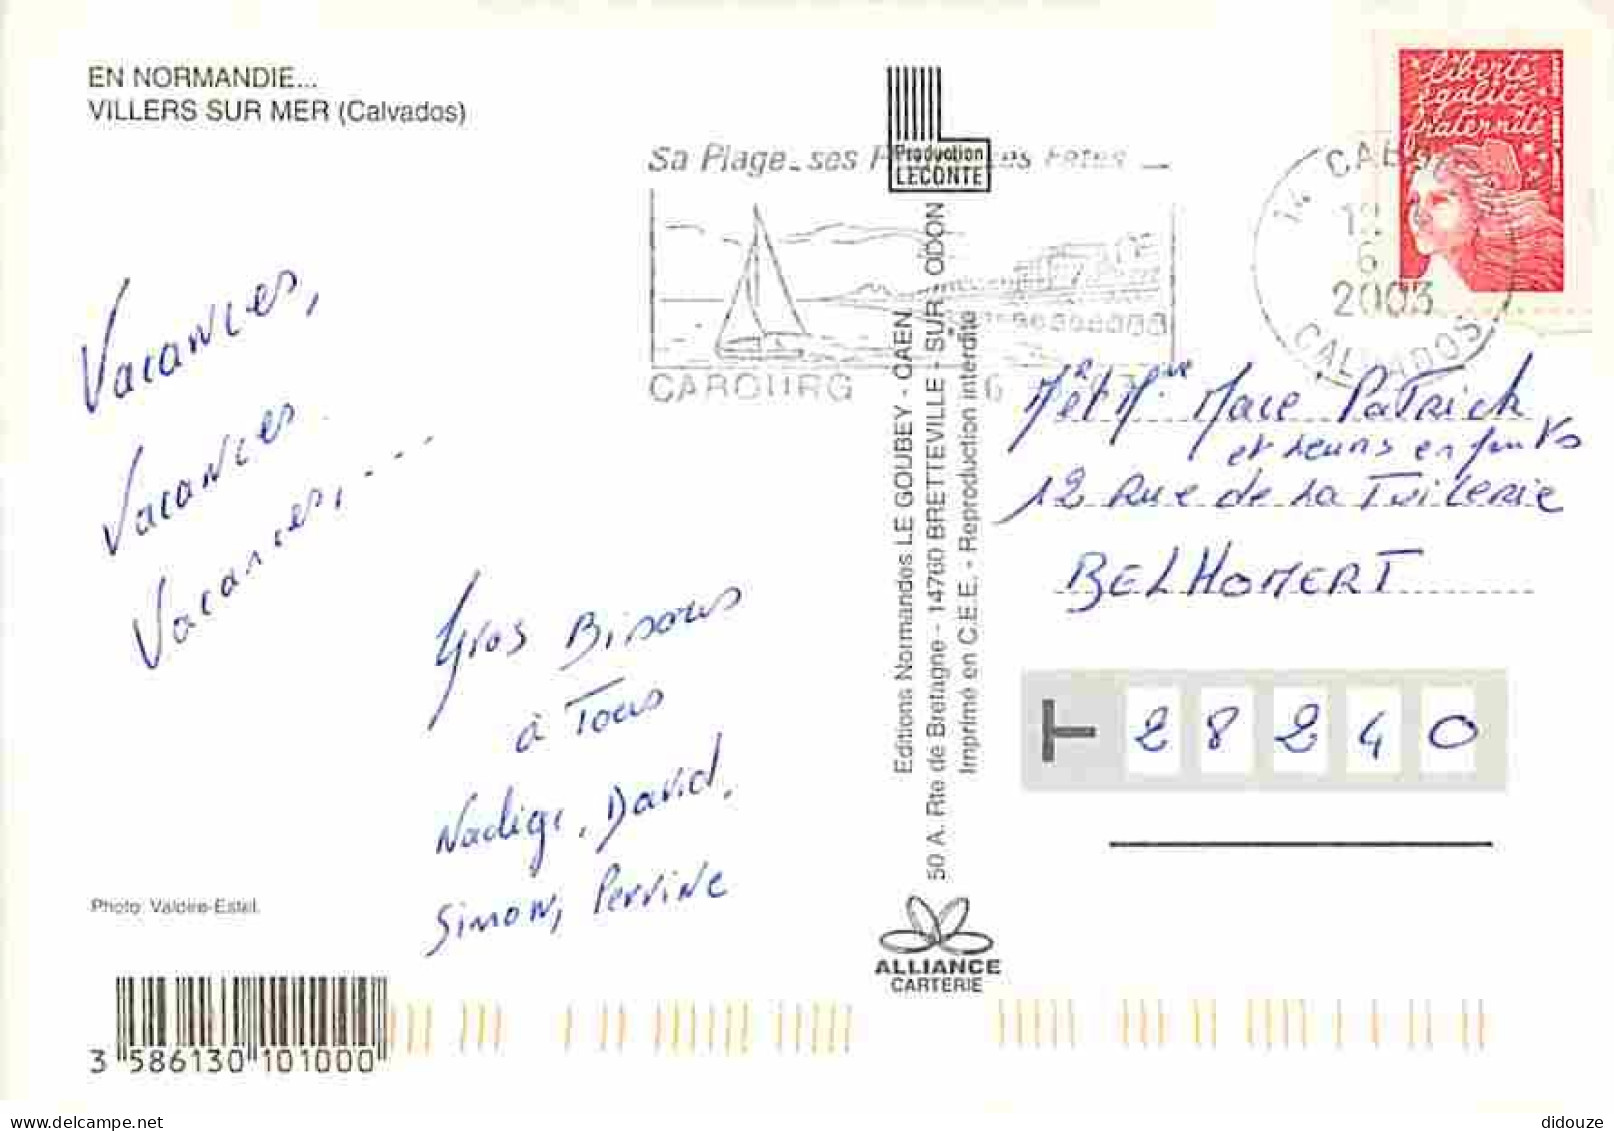 EN NORMANDIE...
VILLERS SUR MER (Calvados)
Production
LECONTE
Sa Plage - ses Fêtes
CABOURG
14 CABOURG
6
2003
CALVADOS
liberté
égalité
fraternité
Vacances,
Vacances
Vacances, ...
Gros Bisous
à Tous
Nadège, David,
Simon, Perrine
Editions Normandes LE GOUBEY - CAEN
50 A. Rte de Bretagne - 14760 BRETTEVILLE - SUR - ODON
Imprimé en C.E.E. - Reproduction interdite
Mr et Mme Mace Patrick
et leurs enfants
12 Rue de la Tuilerie
BELHOMERT
28240
Photo: Valoire-Estel.
ALLIANCE
CARTERIE
3 586130 101000
didouze